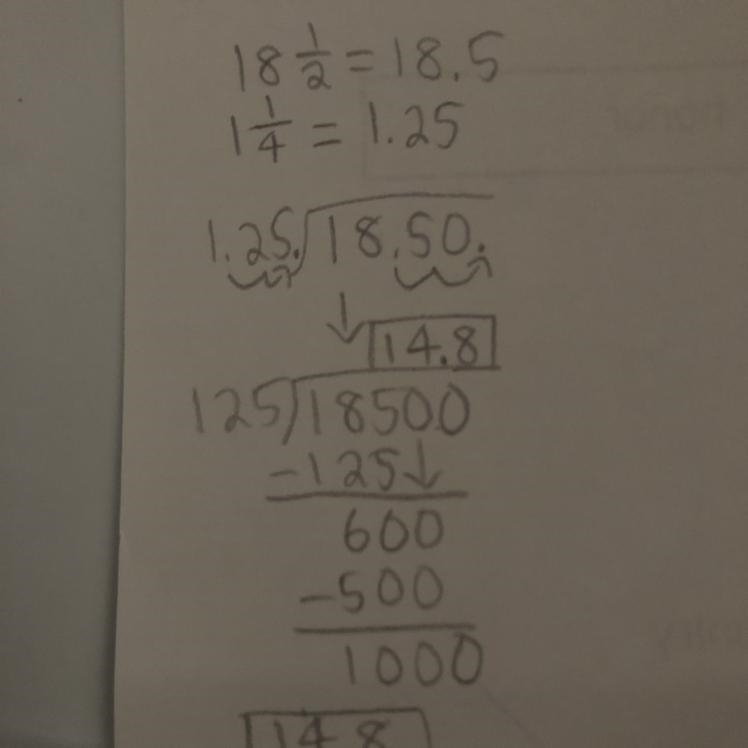 18 1/2 = 18.5
1 1/4 = 1.25
1.25.)18.50.
14.8
125)1850.0
-125
600
-500
1000
14.8